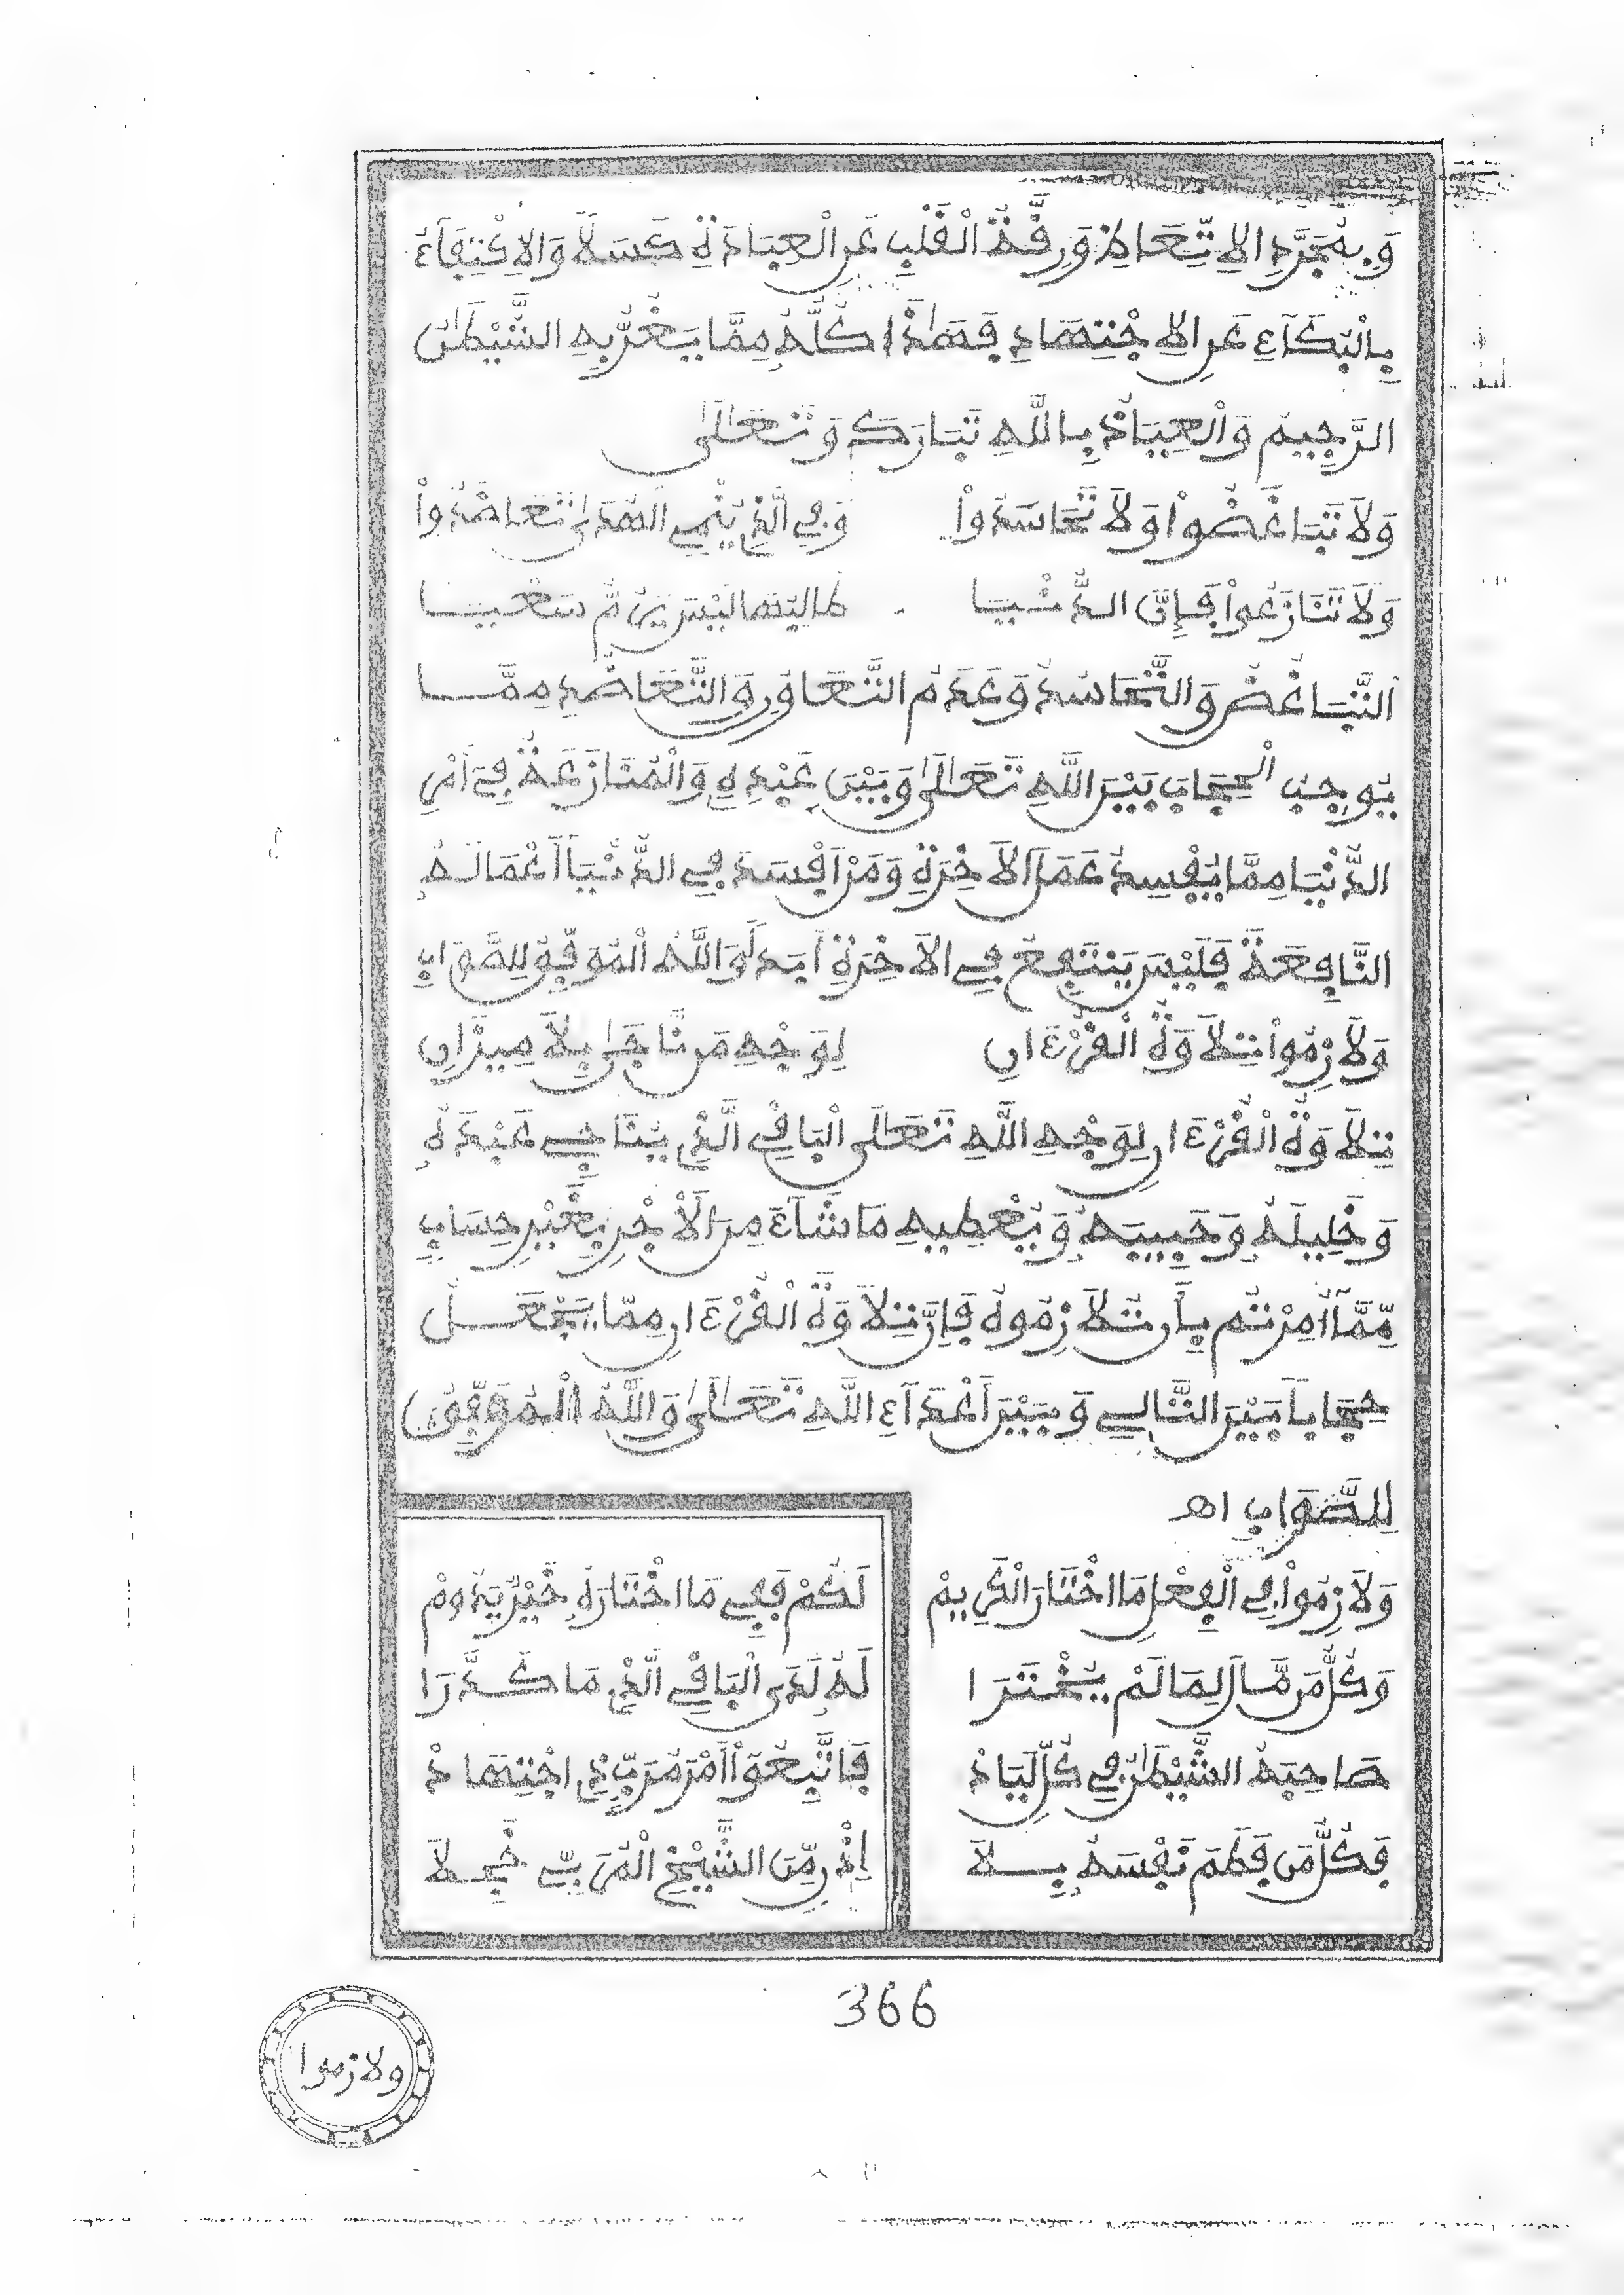 وَبِمُجَرَّدِ الِاتِّعَاظِ وَرِقَّةُ الْقَلْبِ عَنِ الْعِبَادَةِ كَسَلًا وَالِاكْتِفَآءُ
بِالْبُكَآءِ عَنِ الِاجْتِهَادِ فَهَٰذَا كُلُّهُ مِمَّا يَغُرُّ بِهِ الشَّيْطَٰنُ
الرَّجِيمُ وَالْعِيَاذُ بِاللَّهِ تَبَارَكَ وَتَعَالَىٰ
وَلَا تَبَاغَضُواْ وَلَا تَحَاسَدُواْ وَفِي الَّذِي يُنْمِي الْهُدَىٰ تَعَاضَدُواْ
وَلَا تَنَازَعُواْ فَإِنَّ الدُّنْيَا
اَلتَّبَاغُضُ وَالتَّحَاسُدُ وَعَدَمُ التَّعَاوُنِ وَالتَّعَاضُدِ مِمَّا
يُوجِبُ الْحِجَابَ بَيْنَ اللَّهِ تَعَالَىٰ وَبَيْنَ عَبْدِهِ وَالْمُنَازَعَةُ فِيَ أَمْرِ
الدُّنْيَا مِمَّا يُفْسِدُ عَمَلَ الَاخِرَةِ وَمَنْ أَفْسَدَ فِي الدُّنْيَا أَعْمَالَهُ
النَّافِعَةَ فَلَيْسَ يَنْتَفِعُ فِي الَاخِرَةِ أَبَدًا وَاللَّهُ الْمُوَفِّقُ لِلصَّوَابِ
وَلَازِمُواْ تِلَاوَةَ الْقُرْءَانِ لِوَجْهِ مَن نَّاجَىٰ بِلَا مِيزَانِ
تِلَاوَةُ الْقُرْءَانِ لِوَجْهِ اللَّهِ تَعَالَى الْبَاقِي الَّذِي يُنَاجِي عَبْدَهُ
وَخَلِيلَهُ وَحَبِيبَهُ وَيُعْطِيهِ مَا شَآءَ مِنَ الَأجْرِ بِغَيْرِ حِسَابٍ
مِّمَّآ أُمِرْتُم بِأَن تُلَازِمُوهُ فَإِنَّ تِلَاوَةَ الْقُرْءَانِ مِمَّا يَجْعَلُ
حِجَابًا بَيْنَ التَّالِي وَبَيْنَ أَعْدَآءِ اللَّهِ تَعَالَىٰ وَاللَّهُ الْمُوَفِّقُ
لِلصَّوَابِ اهـ
وَلَازِمُواْ فِي الْفِعْلِ مَا اخْتَارَ الْكَرِيمْ لَكُمْ فَفِي مَا اخْتَارَهُ خَيْرٌ يَدُومْ
وَكُلُّ مَن مَّالَ لِمَا لَمْ يُخْتَرَا لَهُ لَدَى الْبَاقِي الَّذِي مَا كَدَّرَا
صَاحِبُهُ الشَّيْطَٰنُ فِي كُلِّ لَيَاذْ فَاتَّبِعُواْ أَمْرَ مُرَبٍّ ذِي اجْتِهَاذْ
فَكُلُّ مَن فَطَمَ نَفْسَهُ بِلَا إِذْنٍ مِّنَ الشَّيْخِ الْمُرَبِّي خَجِلَا
366
ولازموا